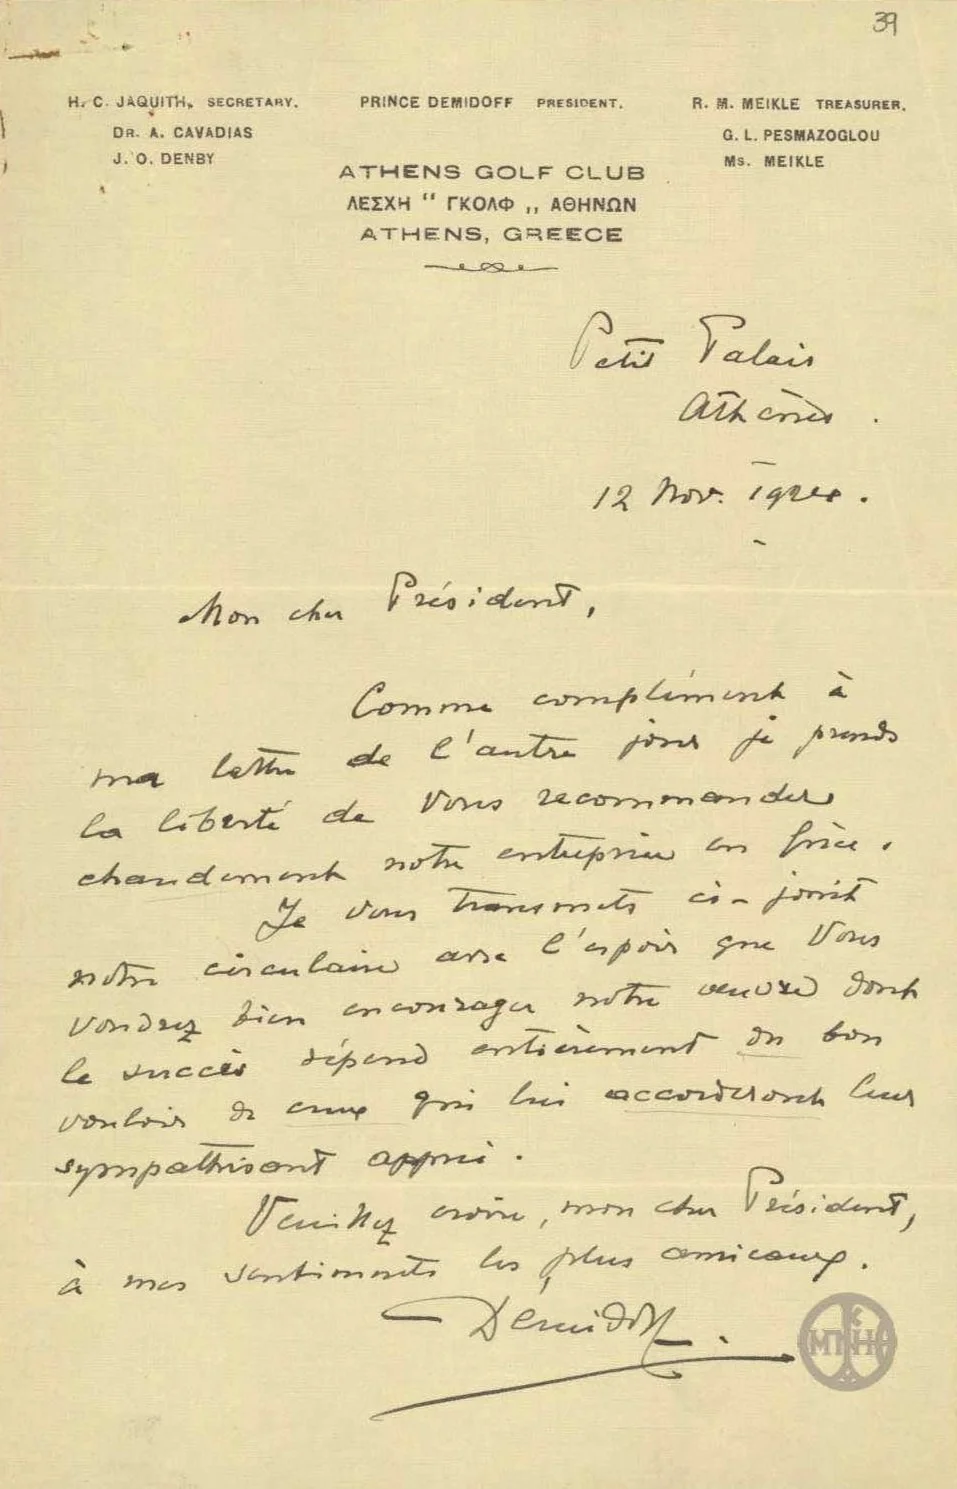 39
H. C. JAQUITH, SECRETARY.
DR. A. CAVADIAS
J. O. DENBY
PRINCE DEMIDOFF PRESIDENT.
R. M. MEIKLE TREASURER.
G. L. PESMAZOGLOU
Ms. MEIKLE
ATHENS GOLF CLUB
ΛΕΣΧΗ “ ΓΚΟΛΦ „ ΑΘΗΝΩΝ
ATHENS, GREECE
Petit Palais
Athènes.
12 Nov.
Mon cher Président,
Comme complément à
ma lettre de l'autre jour je prends
la liberté de Vous recommander
chaudement notre entreprise en Grèce.
Je vous transmets ci-joint
notre circulaire avec l'espoir que Vous
voudrez bien encourager notre œuvre dont
le succès dépend entièrement du bon
vouloir de ceux qui lui accorderont leur
sympathisant appui.
Veuillez croire, mon cher Président,
à mes sentiments les plus amicaux.
Demidoff.
ΜΝΗ